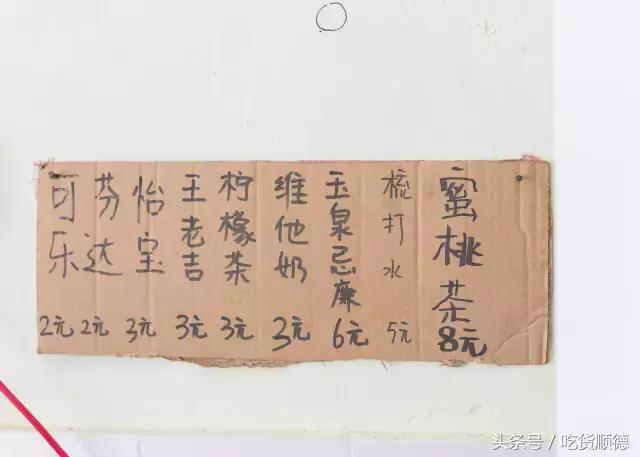 可乐 2元
芬达 2元
怡宝 3元
王老吉 3元
柠檬茶 3元
维他奶 3元
玉泉忌廉 6元
梳打水 5元
蜜桃茶 8元
头条号／吃货顺德